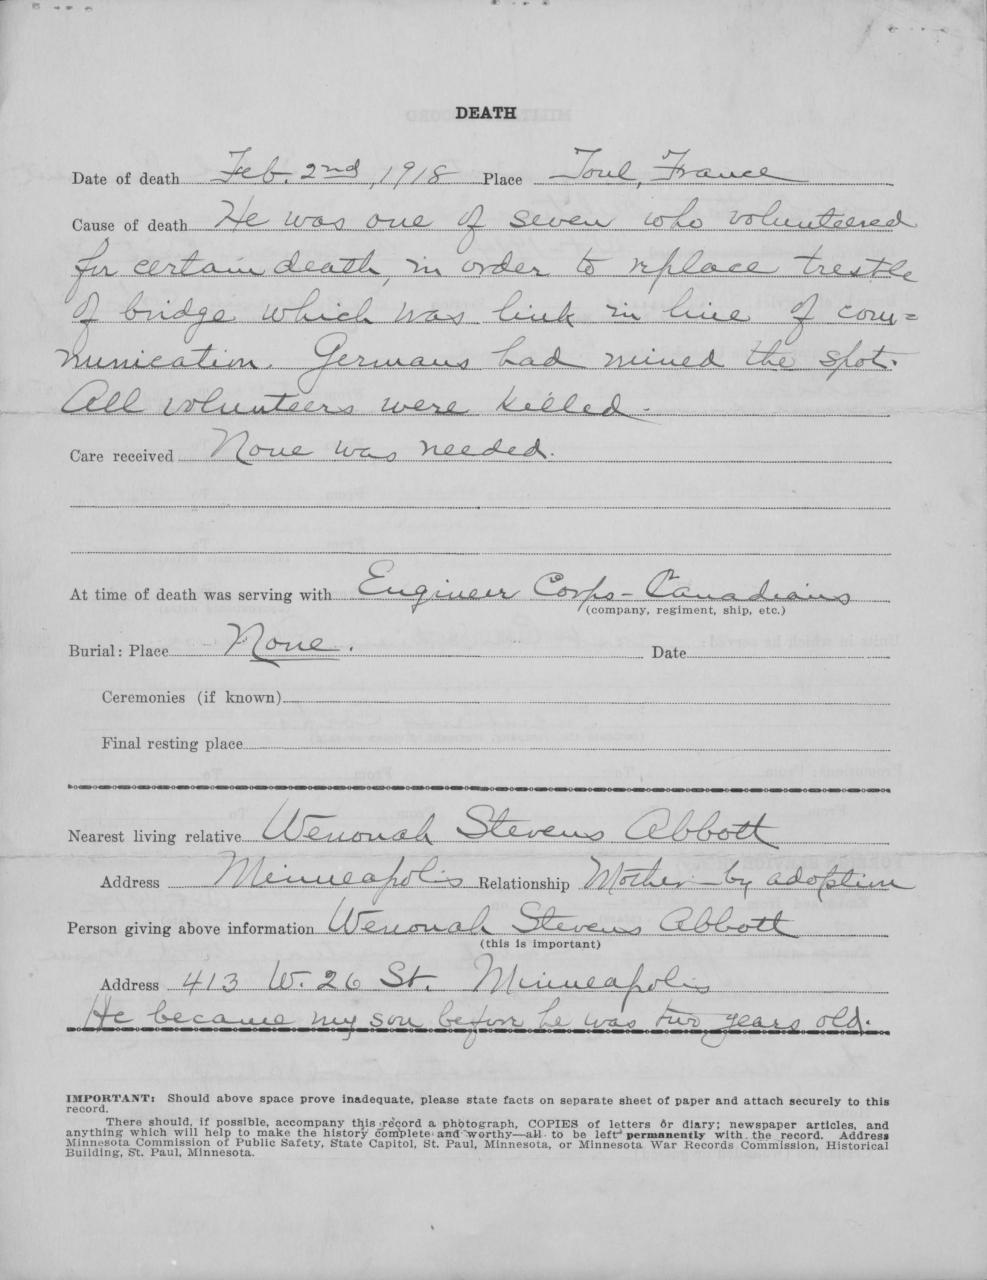 DEATH
Date of death Feb. 2nd, 1918 Place Toul, France
Cause of death He was one of seven who volunteered
for certain death, in order to replace trestle
of bridge which was link in line of com=
munication. Germans had mined the spot.
All volunteers were killed.
Care received None was needed.
At time of death was serving with Engineer Corps - Canadians
(company, regiment, ship, etc.)
Burial: Place None. Date
Ceremonies (if known)
Final resting place
Nearest living relative Wenonah Stevens Abbott
Address Minneapolis Relationship Mother - by adoption
Person giving above information Wenonah Stevens Abbott
(this is important)
Address 413 W. 26 St. Minneapolis
He became my son before he was two years old.
IMPORTANT: Should above space prove inadequate, please state facts on separate sheet of paper and attach securely to this
record.
There should, if possible, accompany this record a photograph, COPIES of letters or diary; newspaper articles, and
anything which will help to make the history complete and worthy—all to be left permanently with the record. Address
Minnesota Commission of Public Safety, State Capitol, St. Paul, Minnesota, or Minnesota War Records Commission, Historical
Building, St. Paul, Minnesota.